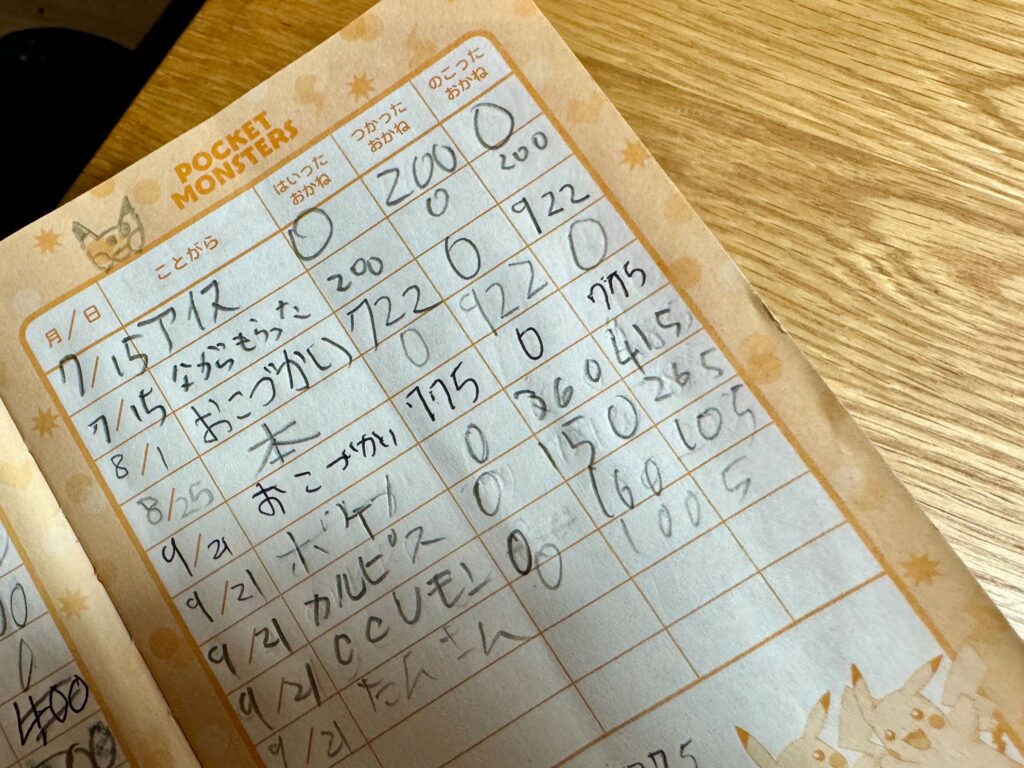 POCKET
MONSTERS
月/日 ことがら はいったおかね つかったおかね のこったおかね
7/15 アイス 0 200 0
7/15 ながらもらった 200 0 200
8/1 おこづかい 722 0 922
8/25 本 0 922 0
9/21 おこづかい 775 0 775
9/21 0 360 415
9/21 カルピス 0 150 265
9/21 CCレモン 0 160 105
9/21 たんさん 0 100 5
00
0
400